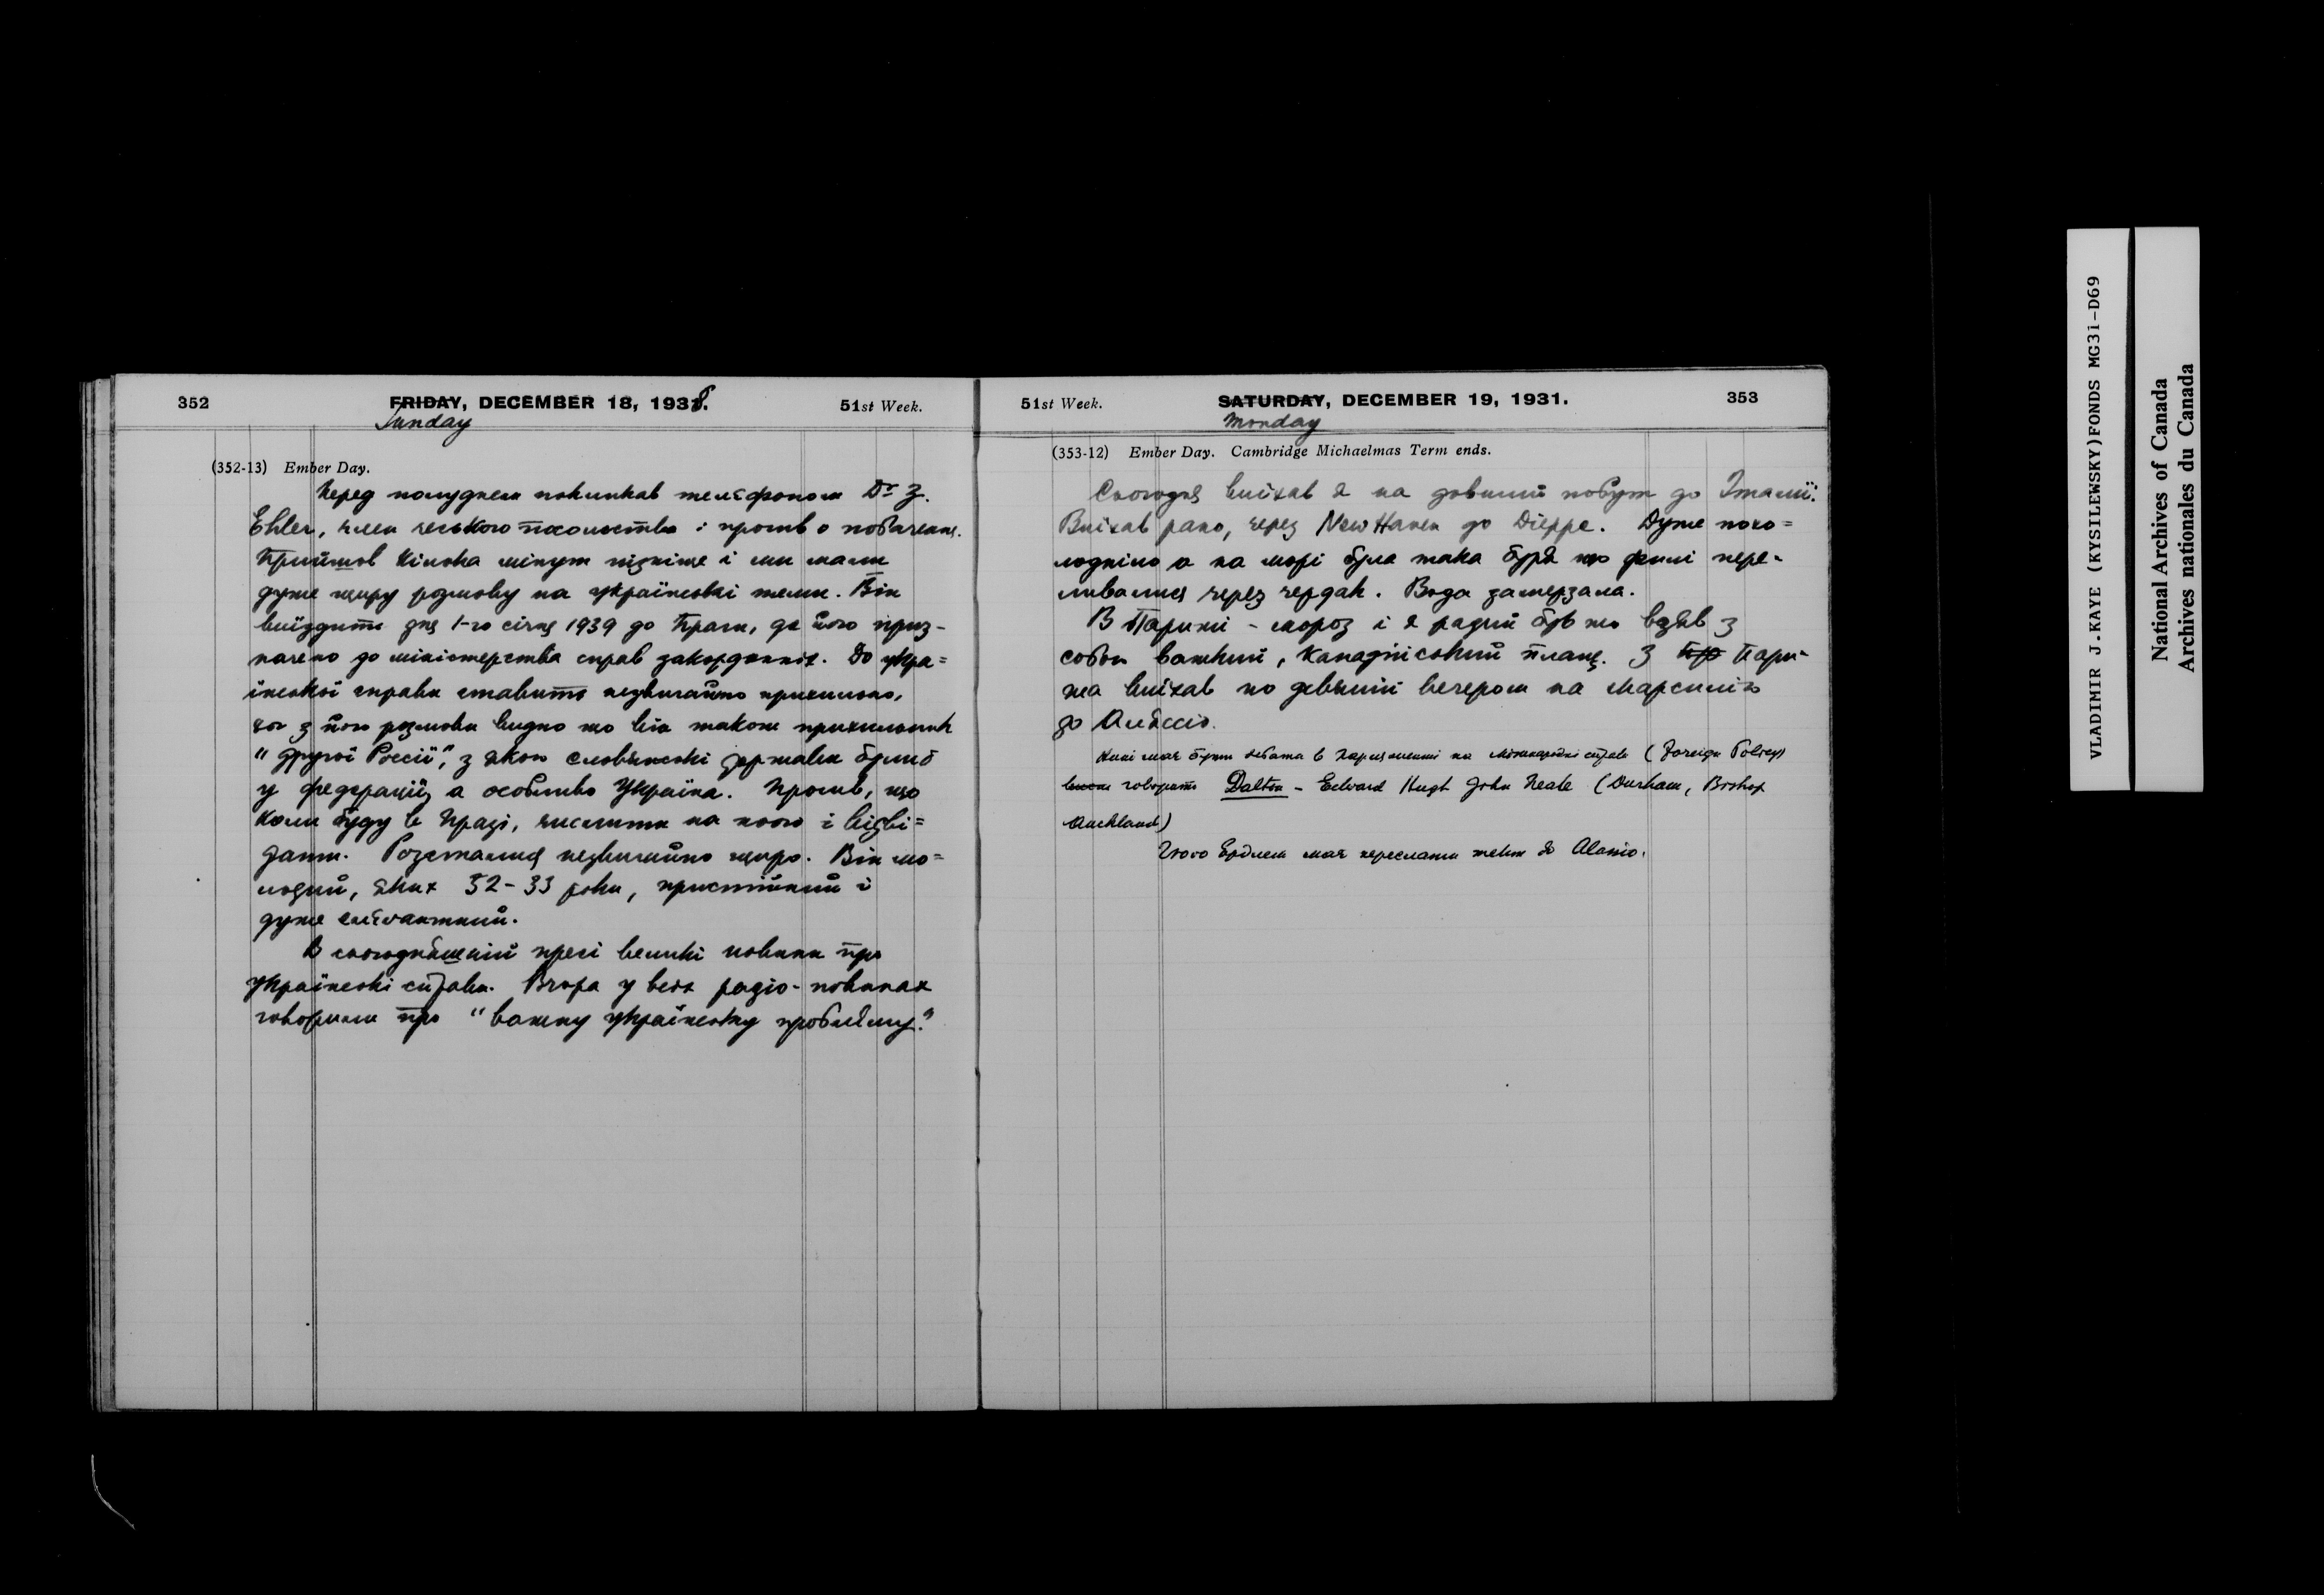 352
FRIDAY, DECEMBER 18, 1938.
51st Week.
Sunday
(352-13) Ember Day.
Перед полуднем покликав телєфоном Dr З.
Ehler, член чеського посольства і просив о побаченнє.
Прийшов кілька мінут пізніше і ми мали
дуже щиру розмову на українські теми. Він
виїздить дня 1-го січня 1939 до Праги, де його приз-
начено до міністерства справ закордонних. До укра=
їнської справи ставить незвичайно прихильно,
з його розмови видно що він також прихильник
"другої Росії", з якою словянські держави булиб
у федерації, а особливо Україна. Просив, що
коли буду в Празі, числити на нього і відві=
дати. Розсталися незвичайно щиро. Він мо=
лодий, яких 32-33 роки, пристійний і
дуже єлєґантний.
В сьогоднішній пресі великі новини про
українські справи. Вчора у всіх радіо-новинах
говорили про "важну українську проблєму."
51st Week.
SATURDAY, DECEMBER 19, 1931.
353
Monday
(353-12) Ember Day. Cambridge Michaelmas Term ends.
Сьогодня виїхав я на довший побут до Італії.
Виїхав рано, через New Haven до Dieppe. Дуже похо=
лодніло а на морі була така буря що филі пере-
ливалися через чердак. Вода замерзала.
В Парижі - мороз і я радий був що взяв з
собою важкий, канадійський плащ. З Пари-
жа виїхав по девятій вечером на Марсилію
до Алассіо.
Нині має бути дебата в парляменті на міжнародні справи (Foreign Policy)
говорить Dalton - Edward Hugh John Neale (Durham, Bishop
Auckland)
Його Ерлем має переслати текст до Alassio.